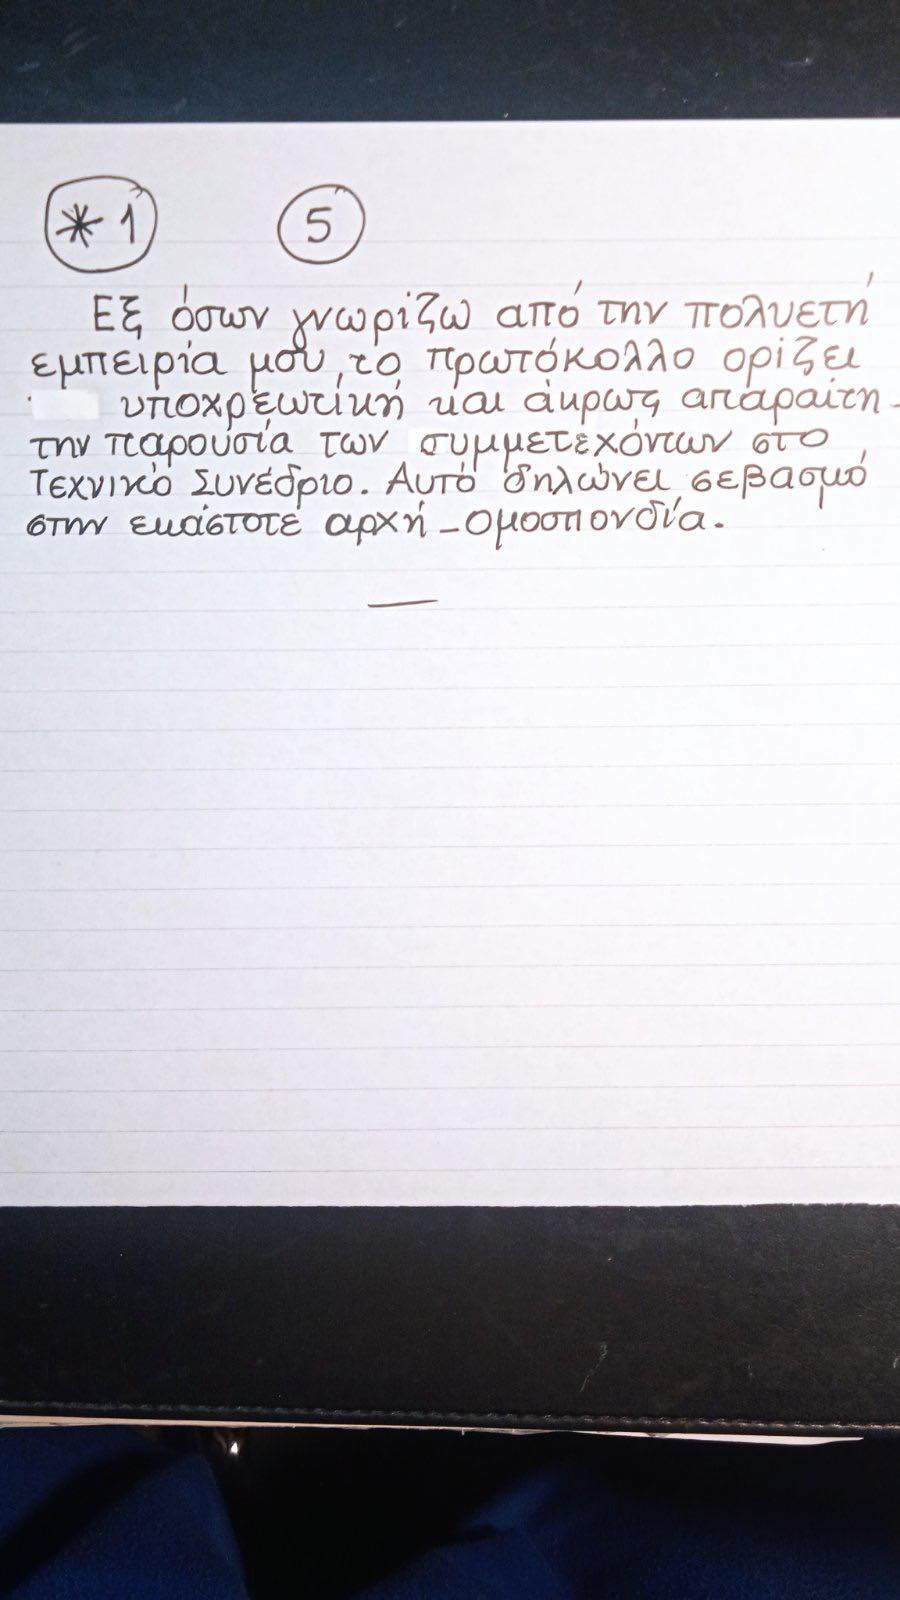 *1 5
Εξ όσων γνωρίζω από την πολυετή
εμπειρία μου, το πρωτόκολλο ορίζει
υποχρεωτική και άκρως απαραίτη-
την παρουσία των συμμετεχόντων στο
Τεχνικό Συνέδριο. Αυτό δηλώνει σεβασμό
στην εκάστοτε αρχή - ομοσπονδία.